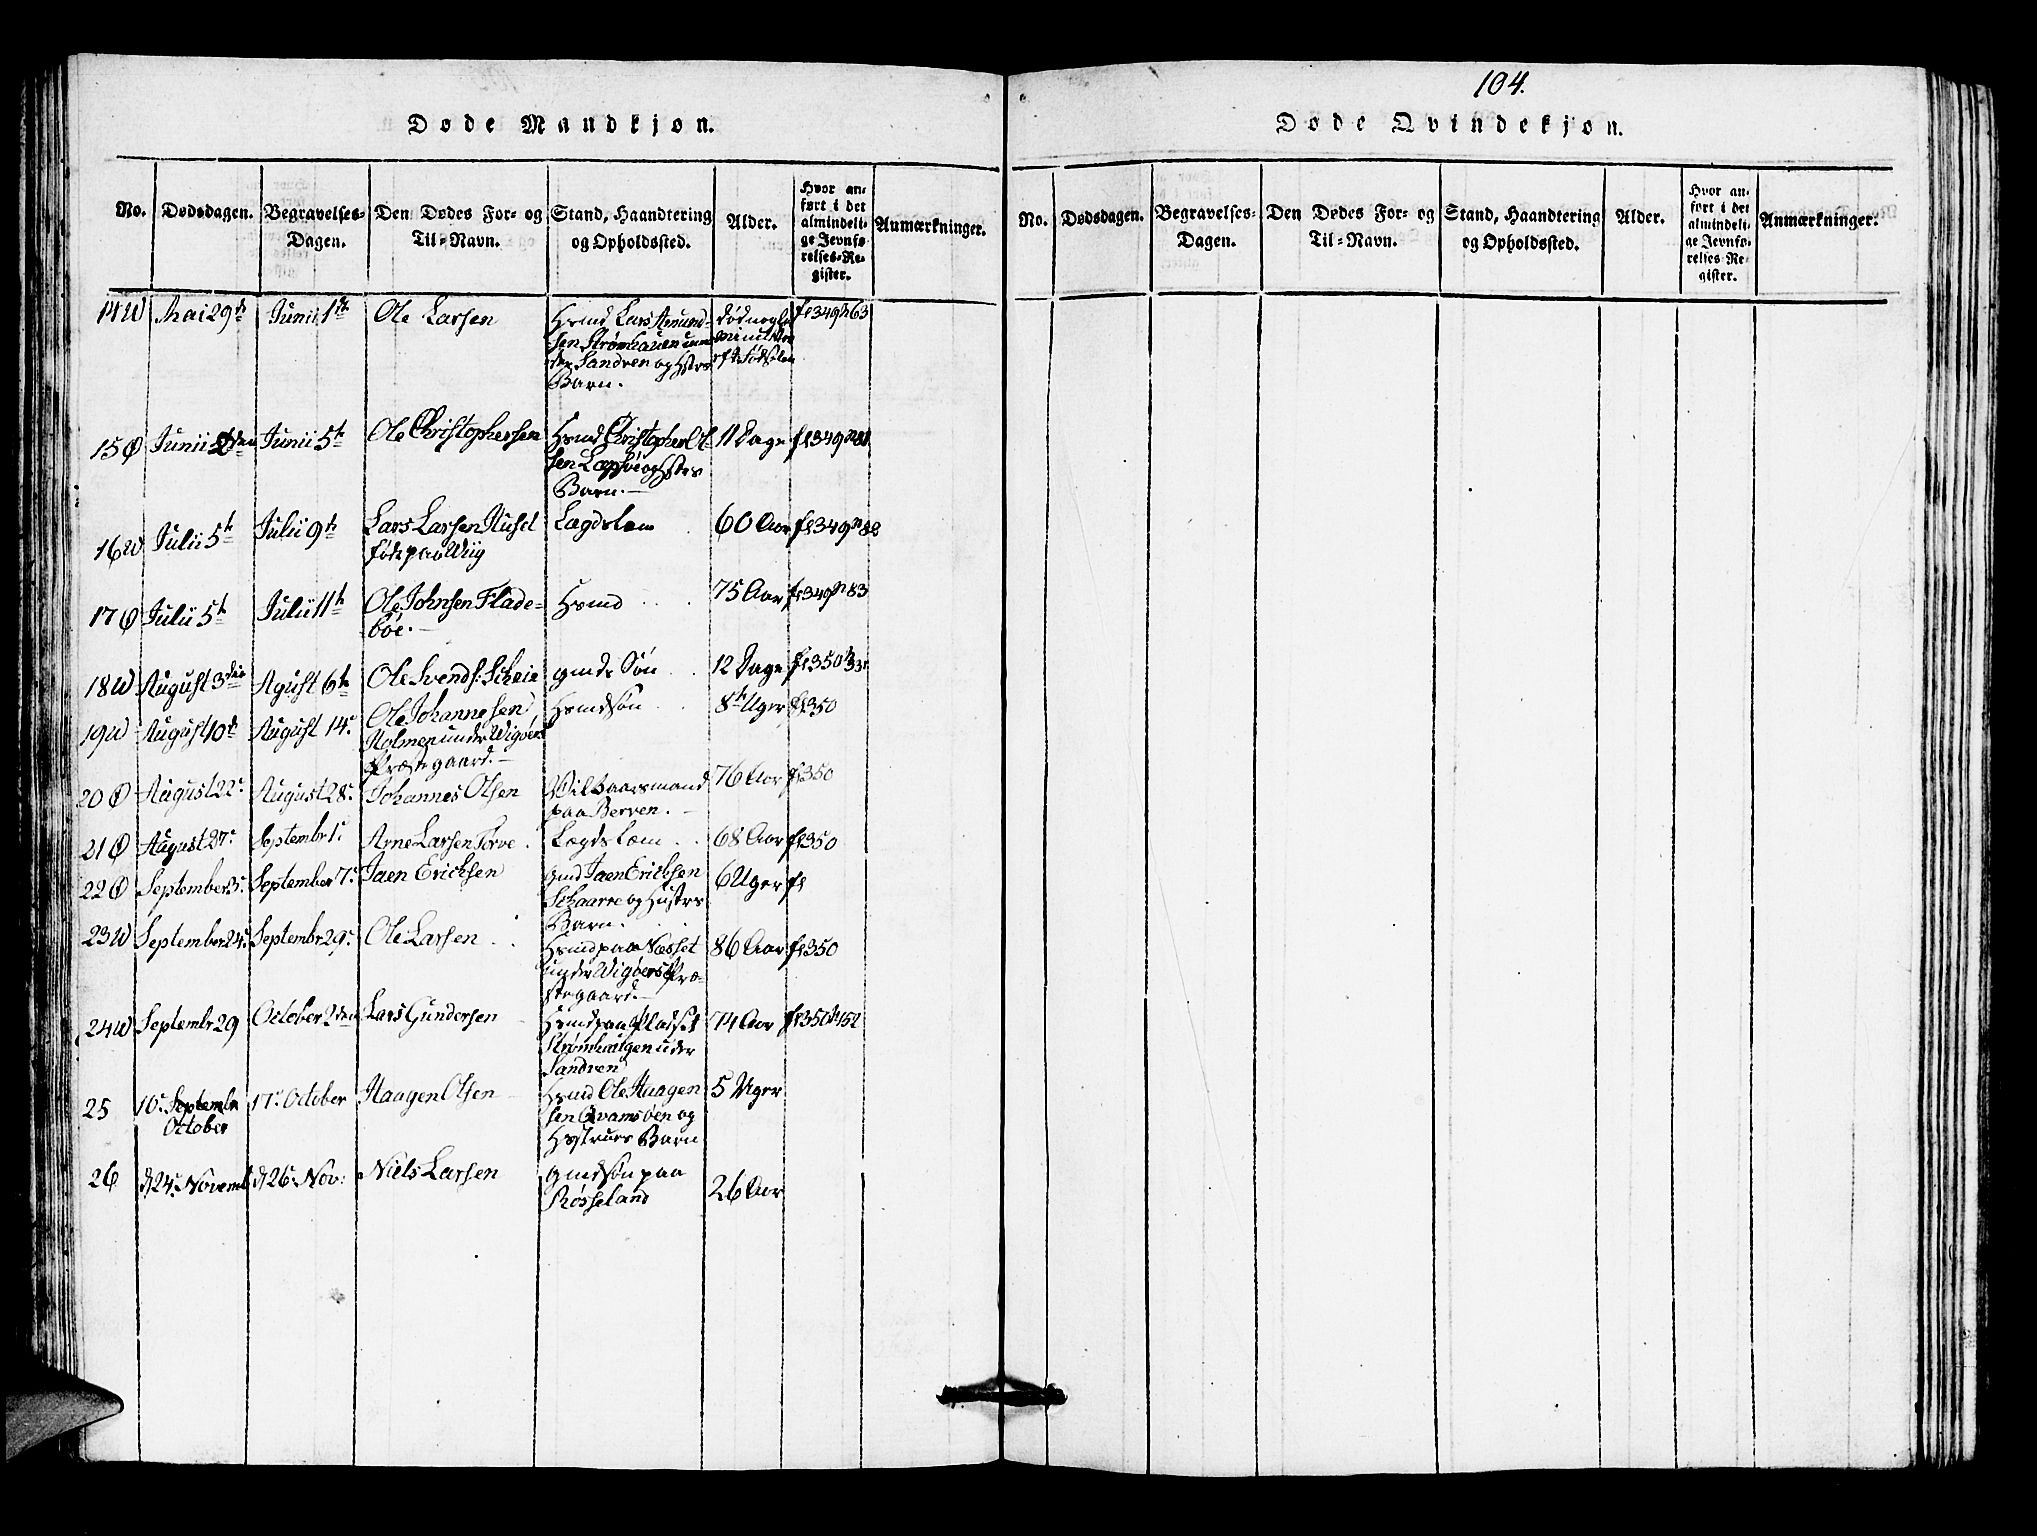 104.
Døde Mandkjøn.
No. Dødsdagen. Begravelses-Dagen. Den Dødes For- og Til-Navn. Stand, Haandtering og Opholdssted. Alder. Hvor anført i det almindelige Jevnførelses-Register. Anmærkninger.
14 W Mai 29de Junii 1ste Ole Larsen Hsmd Lars Amund-
sen Strømhauen un-
der Sandven og Hstrs
Barn.
død nogle
Minutter
efter Fødselen
fl 349 n 63
15 Ø Junii Junii 5te Ole Christophersen Hsmd Christopher Ol-
sen og Hstrs
Barn.
11 Dage fl 349 n
16 W Julii 5te Julii 9te Lars Larsen Huset
født paa Wiig
Lægdslem 60 Aar fl 349 n 82
17 Ø Julii 5te Julii 11te Ole Johnsen Flade-
bøe.
Hsmd 75 Aar fl 349 n 83
18 W August 3die Agust 6te Ole Svends: Scheie gmds Søn 12 Dage fl 350
19 W August 10de August 14. Ole Johannesen
Holmen under Wigøers
Præstegaard.
Hsmdsøn 8te Uger fl 350
20 Ø August 22. August 28. Johannes Olsen Vilkaarsmand
paa Berven.
76 Aar fl 350
21 Ø August 27. Septembr 1. Arne Larsen Torve Lægdslæm 68 Aar fl 350
22 Ø September 3. September 7. Jaen Ericksen gmd Jaen Ericksen
Schaarre og Hustrs
Barn.
6 Uger fl
23 W September 24. Septembr 29. Ole Larsen Hsmd paa Næsset
under Wigøers Præ-
stegaard.
86 Aar fl 350
24 W Septembr 29 October 2den Lars Gundersen Hsmd paa Pladset
Strømhaugen under
Sandven
74 Aar fl 350 n 152
25 10. Septembr
October
17. October Haagen Olsen Hsmd Ole Haagen
sen Qvamsøen og
Hustrues Barn
5 Uger
26 d 24. Novemb d 26. Nov: Niels Larsen gmdsøn paa
Røsseland
26 Aar
Døde Qvindekjøn.
No. Dødsdagen. Begravelses-Dagen. Den Dødes For- og Til-Navn. Stand, Haandtering og Opholdssted. Alder. Hvor anført i det almindelige Jevnførelses-Register. Anmærkninger.